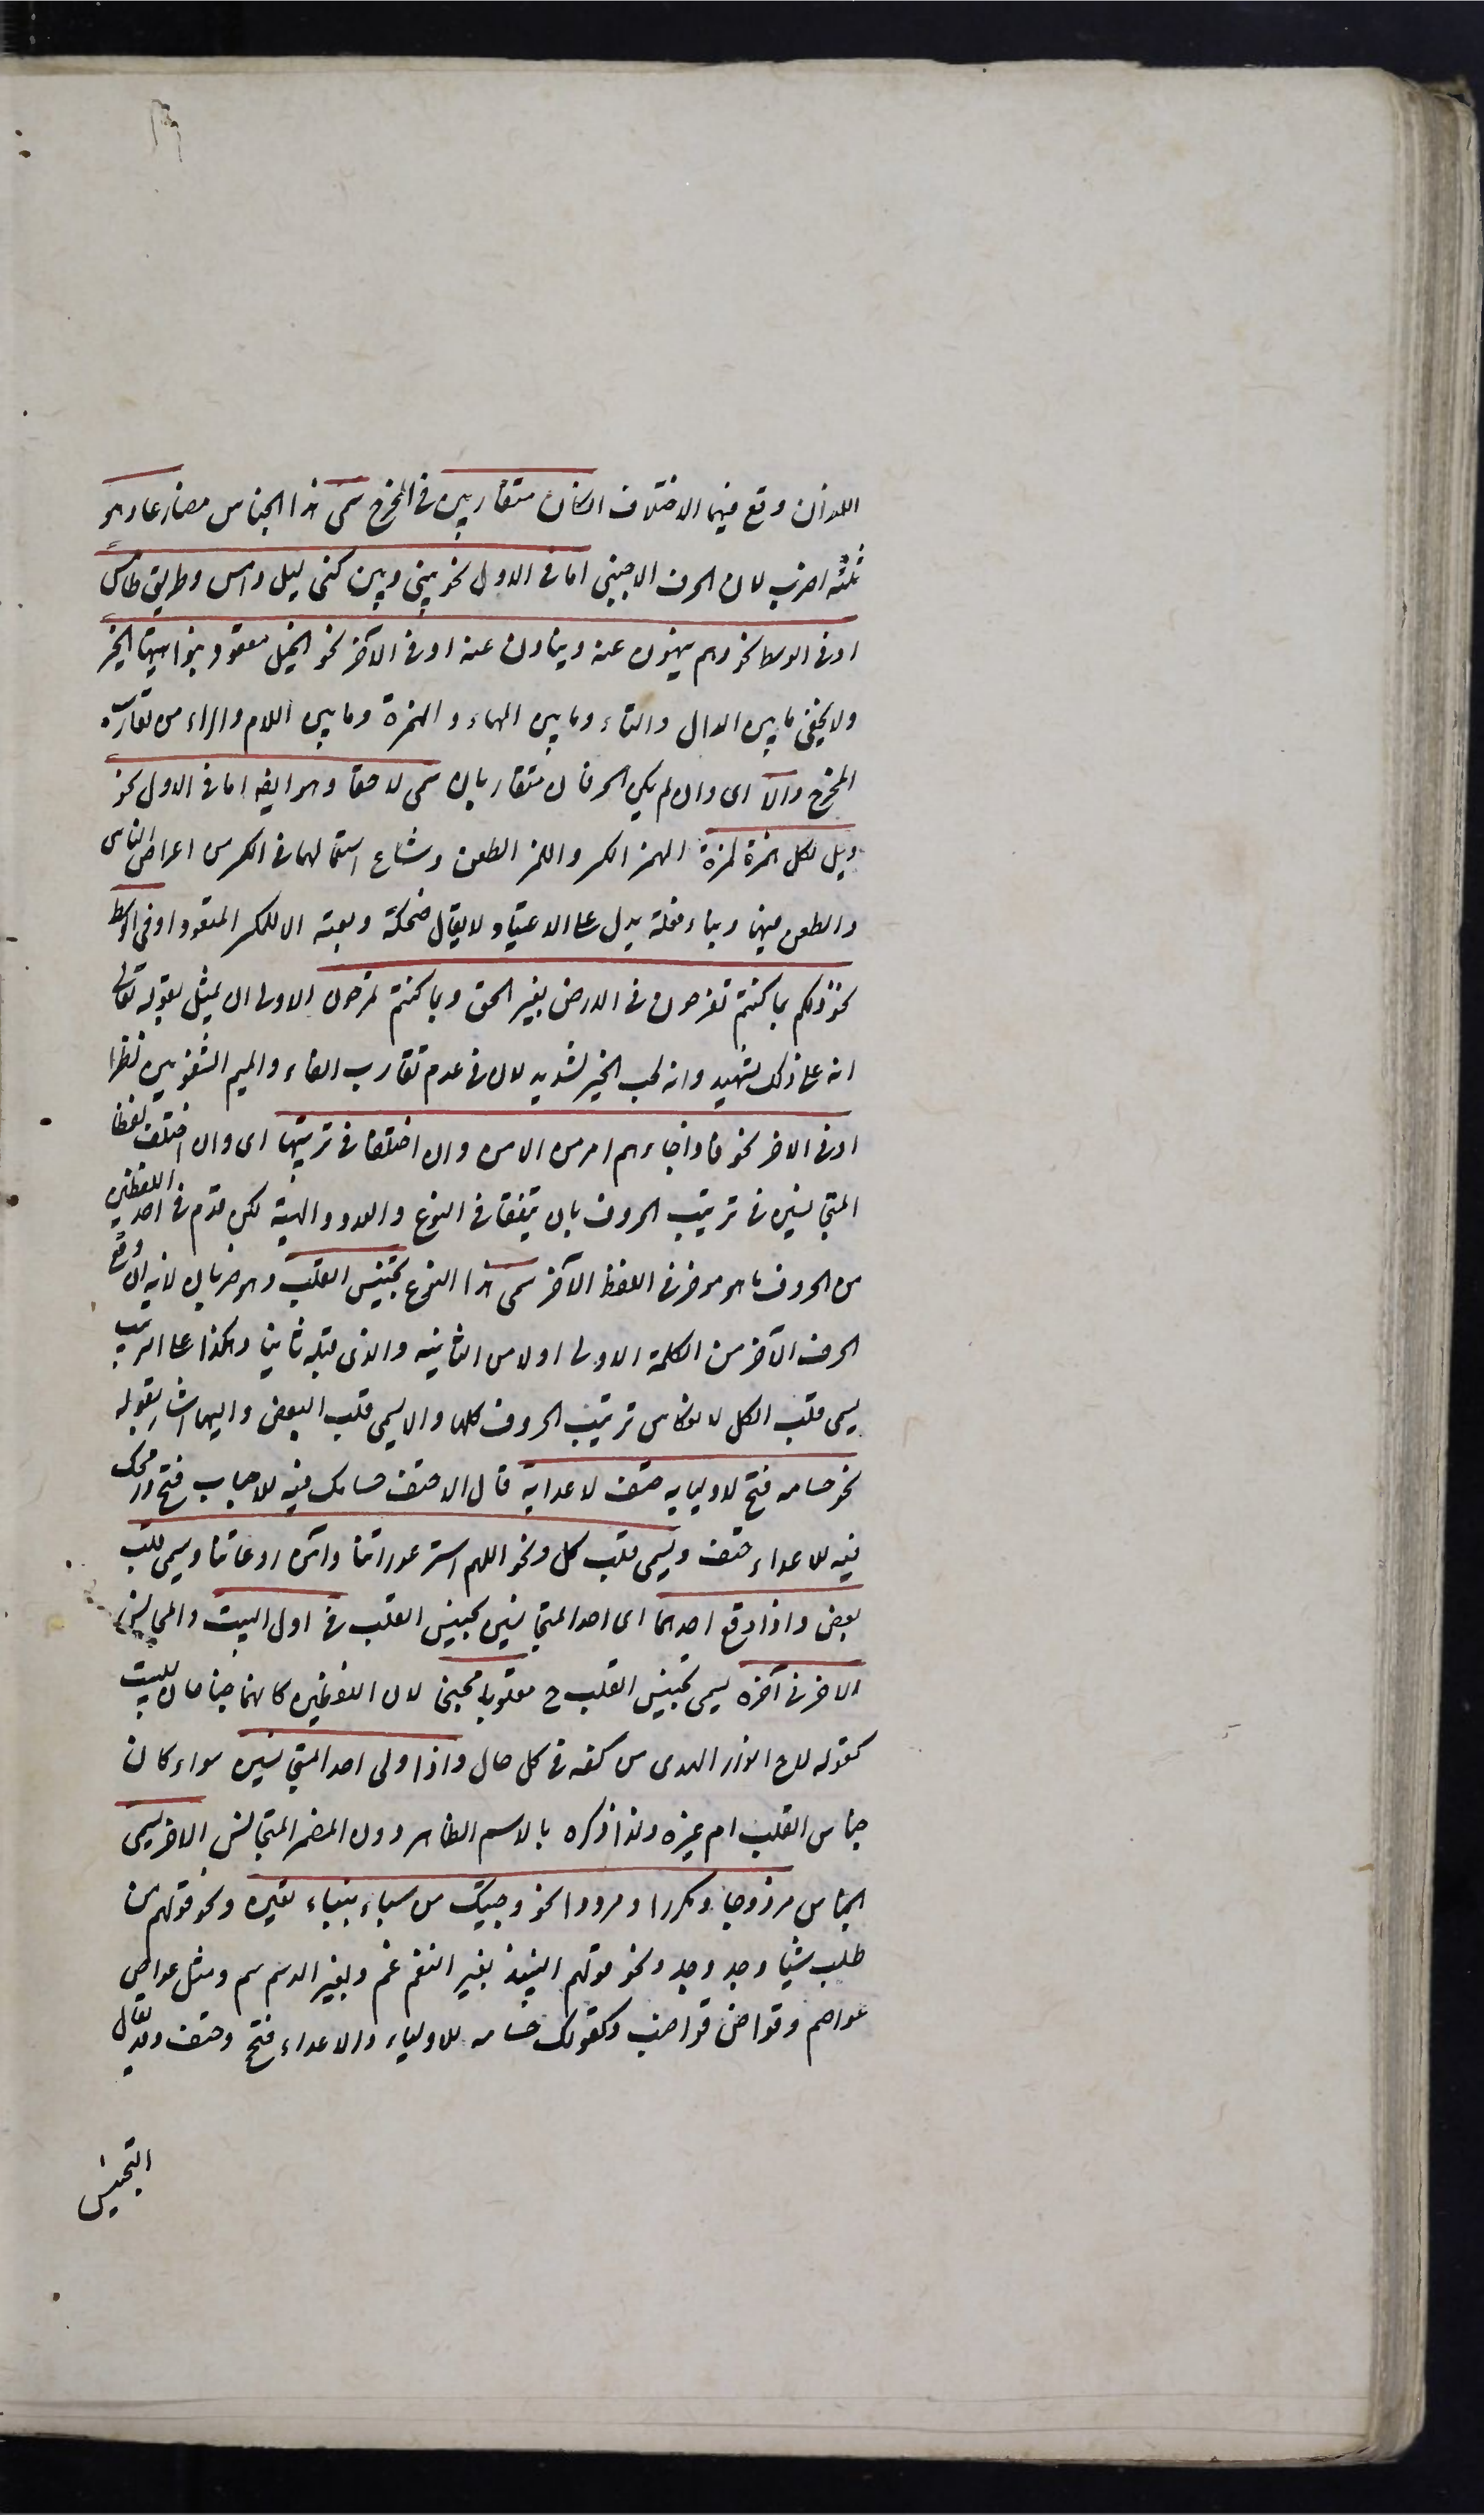 اللذان وقع فيهما الاختلاف ان كان متقاربين في المخرج سمى هذا الجناس مضارعا وهو
ثلثة اضرب لان الحرف الاجنبى اما في الاول نحو بينى وبين كنى ليل دامس وطريق طامس
او في الوسط نحو وهم ينهون عنه وينأون عنه او في الآخر نحو الخيل معقود بنواصيها الخير
ولا يخفى ما بين الدال والطاء وما بين الهاء والهمزة وما بين اللام والراء من تقارب
المخرج والا اى وان لم يكن الحرفان متقاربان سمى لاحقا وهو ايضا اما في الاول نحو
ويل لكل همزة لمزة الهمز الكسر واللمز الطعن وشاع استعمالهما في الكسر من اعراض الناس
والطعن فيها وبناء فعلة يدل على الاعتياد ولا يقال ضحكة ولعنة الا للمكثر المتعود او في الوسط
نحو ذلكم بما كنتم تفرحون في الارض بغير الحق وبما كنتم تمرحون الاولى ان يمثل بقوله تعالى
انه على ذلك لشهيد وانه لحب الخير لشديد لان في عدم تقارب الفاء والميم الشفويين نظرا
او في الاخر نحو فاذا جاءهم امر من الامن وان اختلفا في ترتيبها اى وان اختلف لفظا
المتجانسين في ترتيب الحروف بان يتفقا في النوع والعدد والهيئة لكن قدم في احد اللفظين
من الحروف ما هو مؤخر في اللفظ الآخر سمى هذا النوع تجنيس القلب وهو ضربان لانه ان وقع
الحرف الآخر من الكلمة الاولى اولا من الثانية والذى قبله ثانيا وهكذا على الترتيب
يسمى قلب الكل لانعكاس ترتيب الحروف كلها والا يسمى قلب البعض واليهما اشار بقوله
نحو حسامه فتح لاوليايه حتف لاعدايه قال الاحنف حسامك فيه للاحباب فتح ورمحك
فيه للاعداء حتف ويسمى قلب كل ونحو اللهم استر عوراتنا وآمن روعاتنا ويسمى قلب
بعض واذا وقع احدهما اى احد المتجانسين تجنيس القلب في اول البيت والمجانس
الاخر في آخره يسمى تجنيس القلب ح مقلوبا مجنحا لان اللفظين كانهما جناحان للبيت
كقوله لاح انوار الهدى من كفه في كل حال واذا ولى احد المتجانسين سواء كان
جناس القلب ام غيره ولذا ذكره بالاسم الظاهر دون المضمر المتجانس الاخر يسمى
الجناس مزدوجا ومكررا ومرددا نحو وجئتك من سباء بنباء يقين ونحو قولهم من
طلب شيئا وجد وجد ونحو قولهم النبيذ بغير النغم غم وبغير الدسم سم ومثل عواص
عواصم وقواض قواضب وكقولك حسامه للاولياء والاعداء فتح وحتف وقد يقال
التجنيس